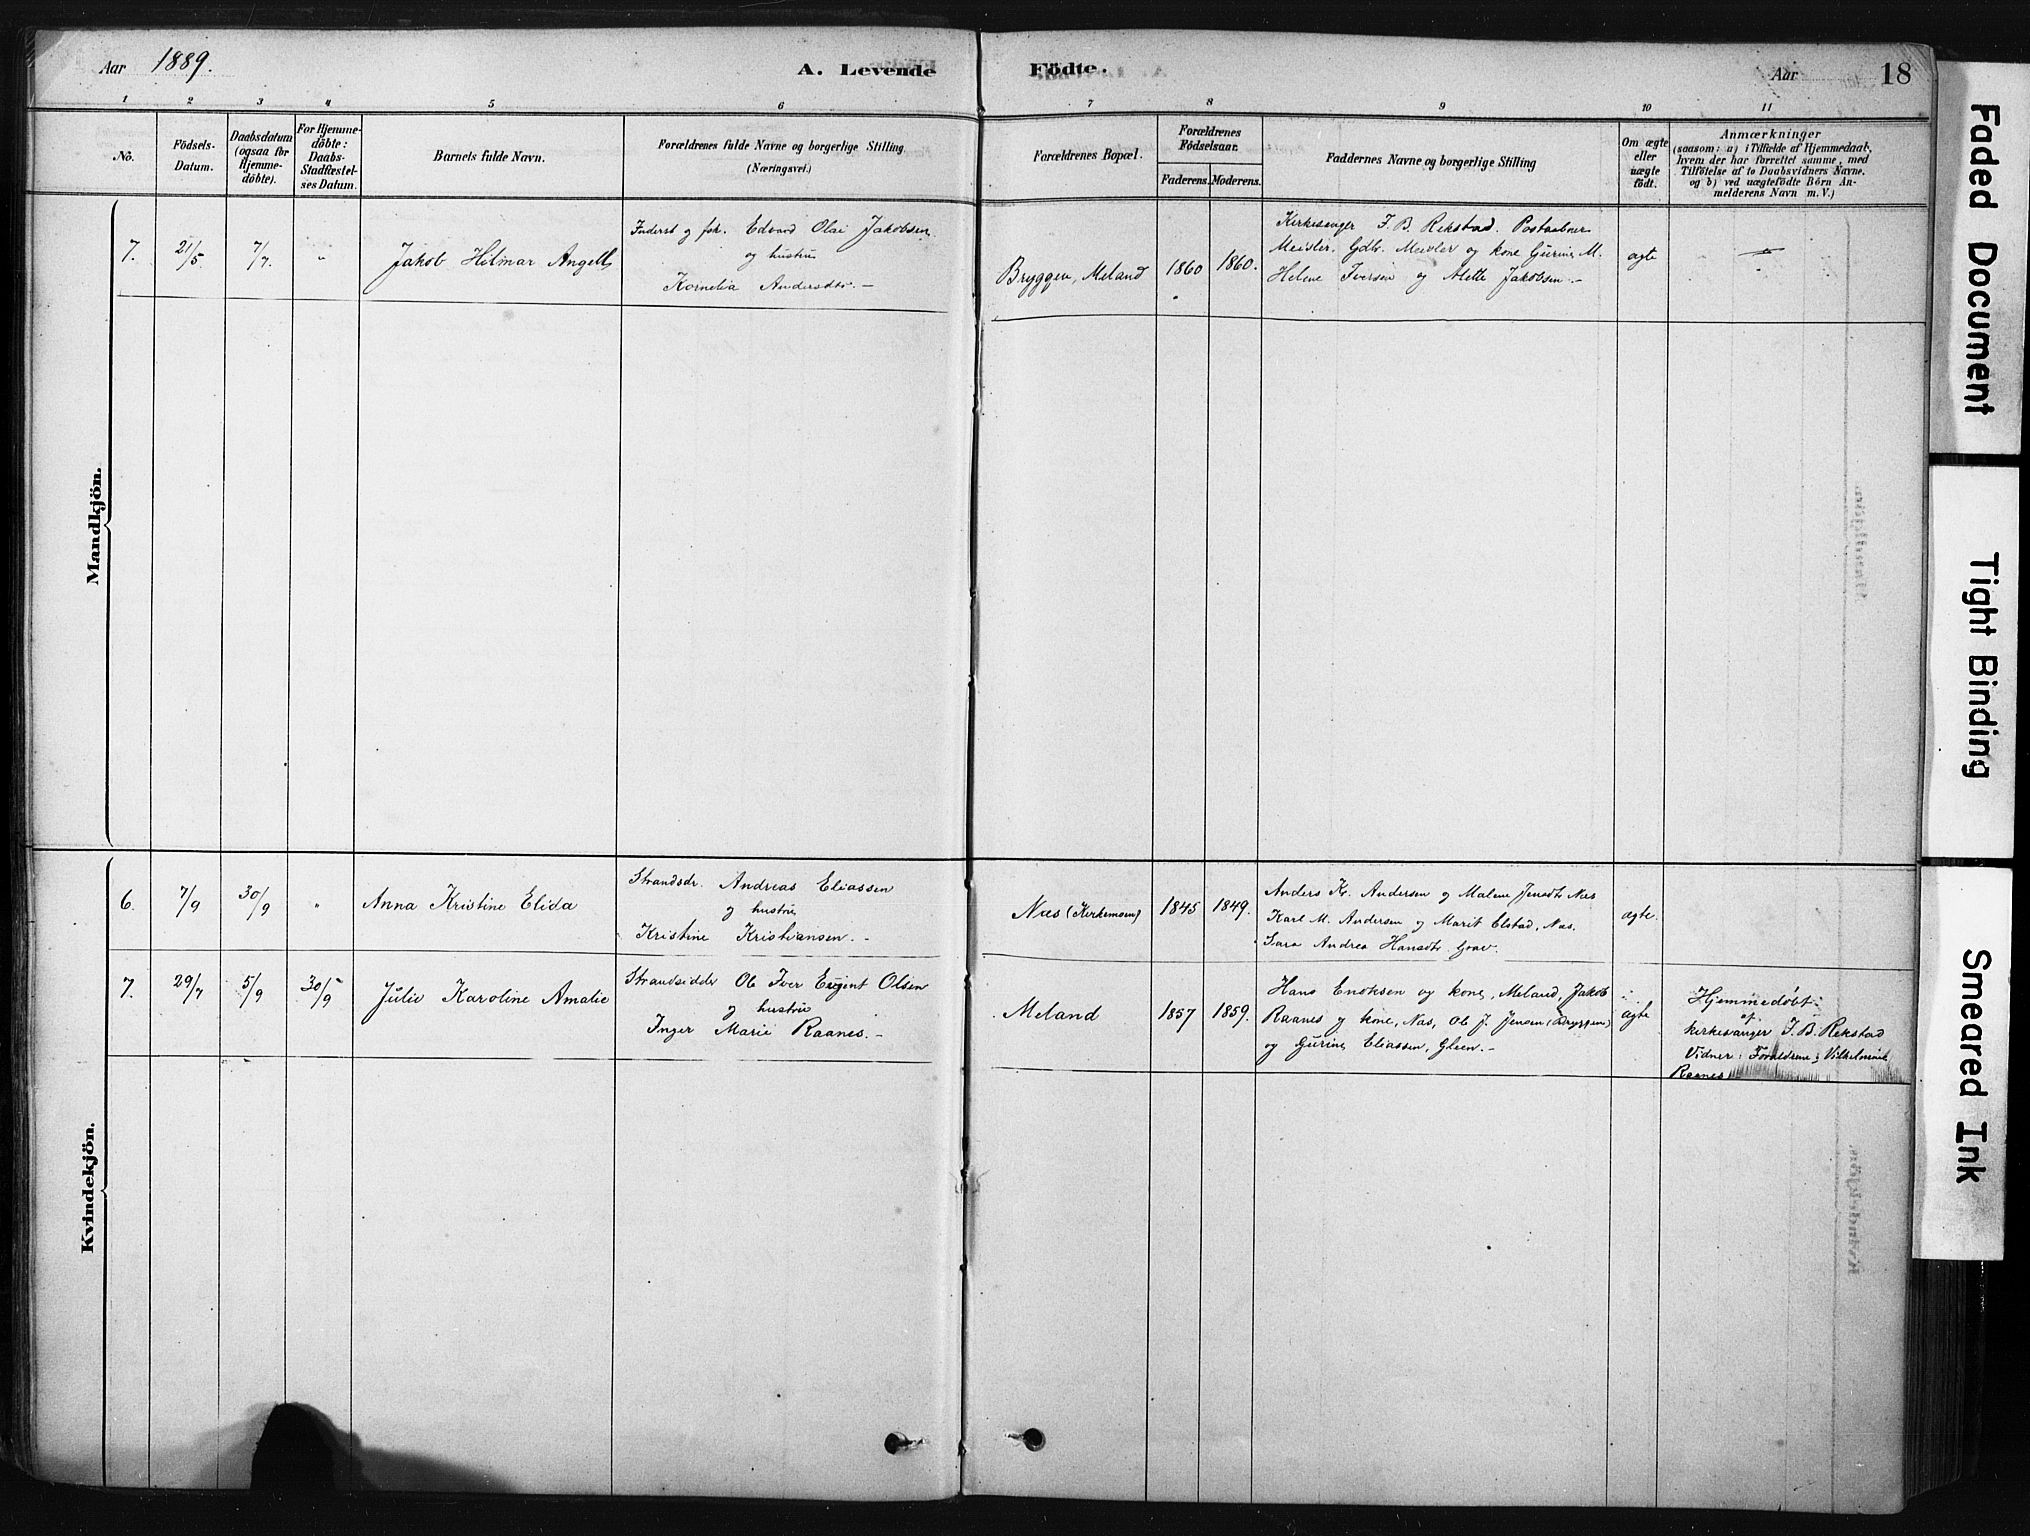 Aar 1889.
A. Levende
Födte.
Aar
18
1 2 3 4 5 6 7 8 9 10 11
No.
Födsels-
Datum.
Daabsdatum
(ogsaa for
Hjemme-
döbte).
For Hjemme-
döbte:
Daabs-
Stadfæstel-
ses Datum.
Barnets fulde Navn.
Forældrenes fulde Navne og borgerlige Stilling
(Næringsvei.)
Forældrenes Bopæl.
Forældrenes
Födselsaar.
Faderens. Moderens.
Faddernes Navne og borgerlige Stilling
Om ægte
eller
uægte
födt.
Anmærkninger
(saasom: a) i Tilfælde af Hjemmedaab,
hvem der har forrettet samme, med
Tilföielse af to Daabsvidners Navne,
og b) ved uægtefödte Börn An-
melderens Navn m. V.)
Mandkjön.
7. 21/5 7/7 " Jakob Hilmar Angell
Inderst og fisk. Edvard Olai Jakobsen
og hustru
Kornelia Andersdtr. —
Bryggen, Meland 1860 1860.
Kirkesanger F. B. Rekstad. Postaabner
Meisler. Gdbr. Meisler og kone Gurine M.
Helene Iversen og Alette Jakobsen. —
ægte
Kvindekjön.
6. 7/9 30/9 " Anna Kristine Elida
Strandsdr. Andreas Eliassen
og hustru
Kristine Kristiansen. —
Næs (Kirkemoen) 1845 1849.
Anders Kr. Andersen og Malene Jensdtr Næs
Karl M. Andersen og Marit Elstad, Næs.
Sara Andrea Hansdtr. Grav.
ægte.
7. 29/7 5/9 30/9 Julie Karoline Amalie
Strandsidder Ole Iver Eugent Olsen
og hustru
Inger Marie Raanes. —
Meland 1857 1859.
Hans Enoksen og kone, Meland, Jakob
Raanes og kone, Næs, Ole J. Jensen (Bryggen)
og Gurine Eliassen, Gleen. —
ægte
Hjemmedøbt
af
kirkesanger F. B. Rekstad
Vidner: Forældrene &amp; Vilhelmine
Raanes
Faded Document
Tight Binding
Smeared Ink